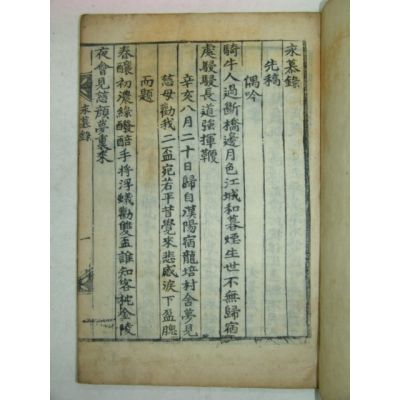 永慕錄
先稿
偶吟
騎牛人過斷橋邊月色江城和暮煙生世不無歸宿
處駸駸長道強揮鞭
辛亥八月二十日歸自漢陽宿龍培村舍夢見
慈母勸我二盃宛若平昔覺來悲感淚下盈腮
而題
春釀初濃綠醱醅手將浮蟻勸雙盃誰知客枕金陵
夜會見慈顏夢裏來
永慕錄
一